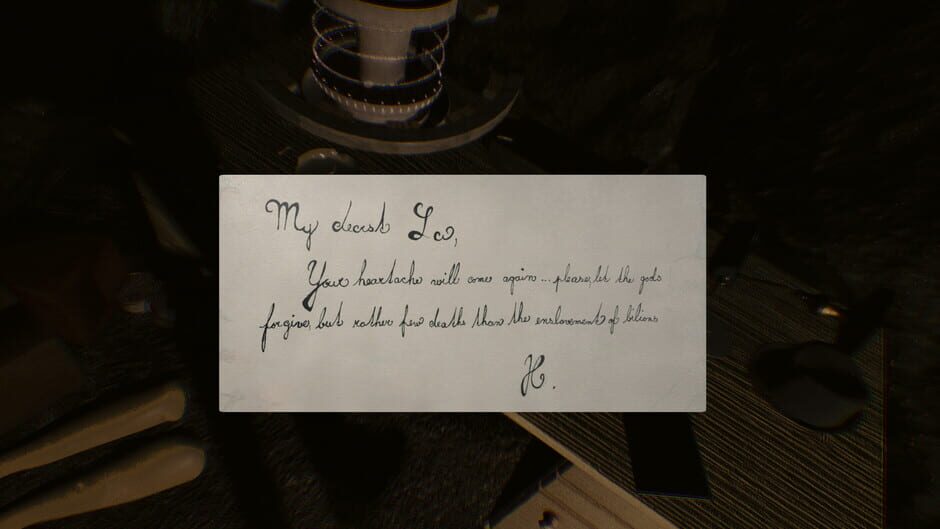 My dearest Lw,
Your heartache will come again... please, let the gods
forgive, but rather few deaths than the enslavement of bilions
H.